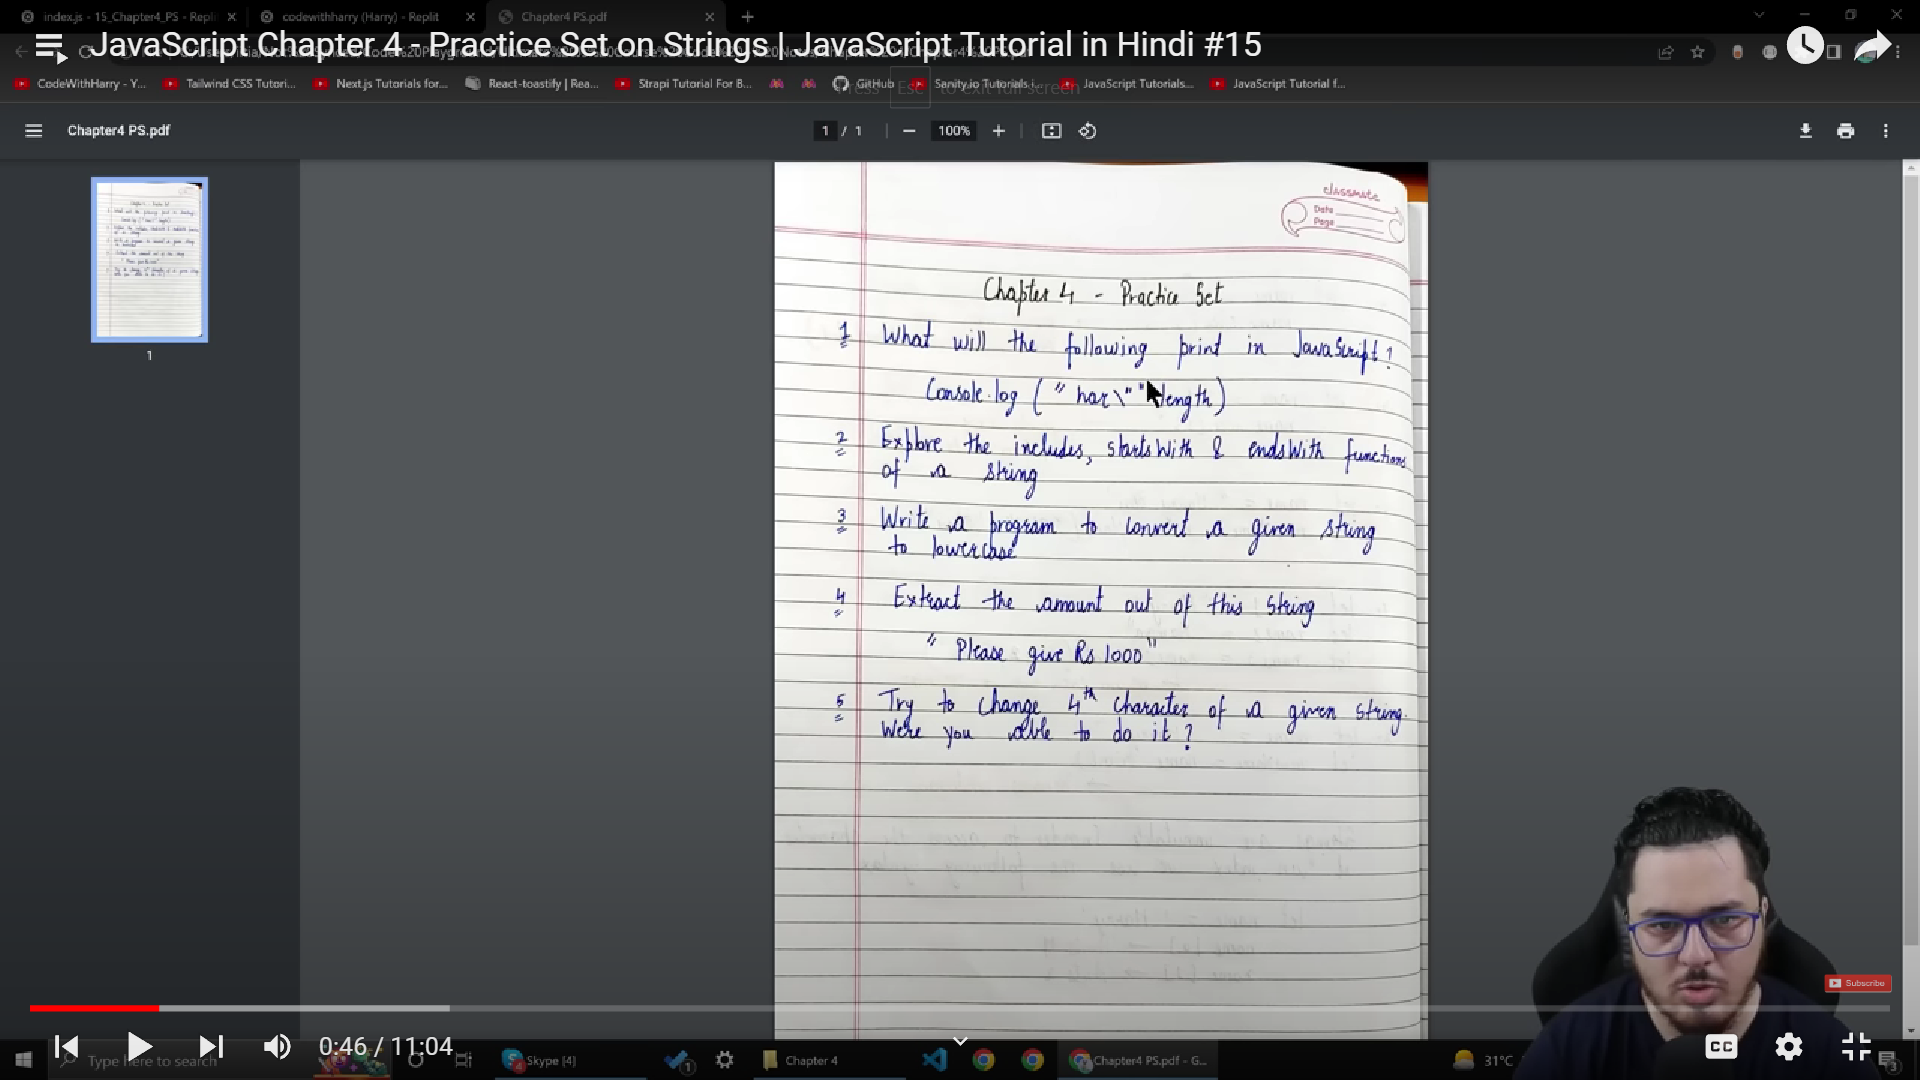 index.js - 15_Chapter4_PS - Repli
codewithharry (Harry) - Replit
Chapter4 PS.pdf
JavaScript Chapter 4 - Practice Set on Strings | JavaScript Tutorial in Hindi #15
CodeWithHarry - Y...
Tailwind CSS Tutori...
Next.js Tutorials for...
React-toastify | Rea...
Strapi Tutorial For B...
GitHub
Sanity.io Tutorials i...
JavaScript Tutorials...
JavaScript Tutorial f...
Press Esc to exit full screen
Chapter4 PS.pdf
1 / 1
100%
1
classmate
Date
Page
Chapter 4 - Practice Set
1 What will the following print in JavaScript?
Console.log ("har\"" length)
2 Explore the includes, startsWith & endsWith functions
of a string
3 Write a program to convert a given string
to lowercase
4 Extract the amount out of this string
"Please give Rs 1000"
5 Try to change 4th character of a given string.
Were you able to do it?
Subscribe
0:46 / 11:04
CC
Type here to search
Skype [4]
Chapter 4
Chapter4 PS.pdf - G...
31°C